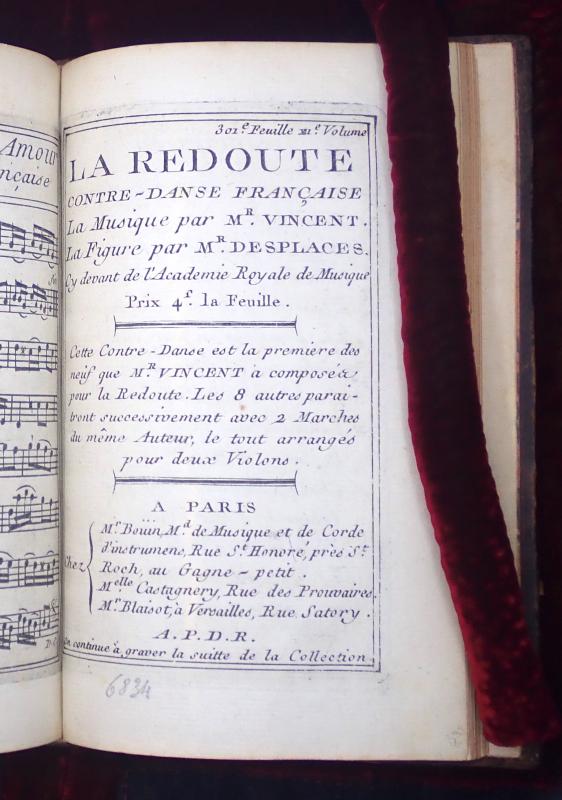 Amour
nçaise
301.e Feuille XI.e Volume
LA REDOUTE
CONTRE-DANSE FRANÇAISE
La Musique par M.R VINCENT.
La Figure par M.R DESPLACES,
Cy devant de l'Academie Royale de Musique
Prix 4.f la Feuille.
Cette Contre-Danse est la premiere des
neuf que M.R VINCENT à composées
pour la Redoute. Les 8 autres parai-
tront successivement avec 2 Marches
du même Auteur, le tout arrangés
pour deux Violons.
A PARIS
Chez
M.r Boüin, M.d de Musique et de Corde
d'instrumens, Rue S.t Honoré, près S.t
Roch, au Gagne-petit.
M.elle Castagnery, Rue des Prouvaires.
M.r Blaisot, à Versailles, Rue Satory.
A.P.D.R.
On continue à graver la suitte de la Collection
6834